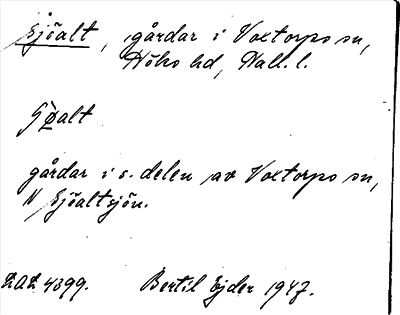 Sjöalt, gårdar i Voxtorps sn,
Höks hd, Hall. l.
gårdar i s. delen av Voxtorps sn,
N Sjöaltsjön.
LAL 4399. Bertil Ejder 1947.